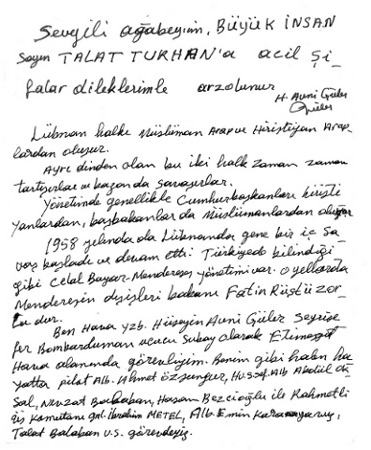 Sevgili ağabeyim, BÜYÜK İNSAN
Sayın TALAT TURHAN'a acil şi-
falar dileklerimle arzolunur
H. Avni Güler
Güler
Lübnan halkı Müslüman Arap ve Hiristiyan Arap-
lardan oluşur.
Ayrı dinden olan bu iki halk zaman zaman
tartışırlar ve bazanda savaşırlar.
Yönetimde genellikle Cumhurbaşkanları hiristi
yanlardan, başbakanlar da Müslümanlardan oluşur
1958 yılında da Lübnanda gene bir iç sa-
vaş başladı ve devam etti. Türkiyede bilindiği
gibi Celal Bayar-Menderes yönetimi var. o yıllarda
Menderesin dışişleri bakanı Fatin Rüştü Zor-
lu dur.
Ben Hava Yzb. Hüseyin Avni Güler Seyrise
fer Bombardıman uçucu Subay olarak Etimesgut
Hava alanında görevliyim. Benim gibi halen ha
yatta pilot Alb. Ahmet Özsengur, Hv. Alb Abdül
Sal, Nevzat Bababan, Hasan Bezcioğlu ile Rahmetli
üs Komutanı gnl. İbrahim METEL, Alb. Emin
Talat Balaban v.s. görevdeyiz.